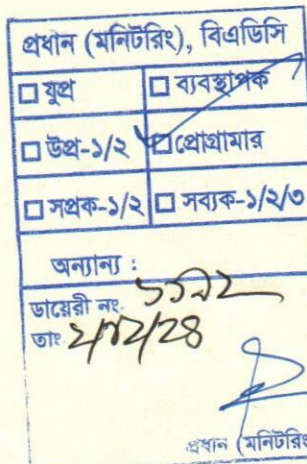 প্রধান (মনিটরিং), বিএডিসি
যুপ্র ব্যবস্থাপক
উপ্র-১/২ প্রোগ্রামার
সপ্রক-১/২ সব্যক-১/২/৩
অন্যান্য :
ডায়েরী নং-
তাং ২/১২/২৪
প্রধান (মনিটরিং